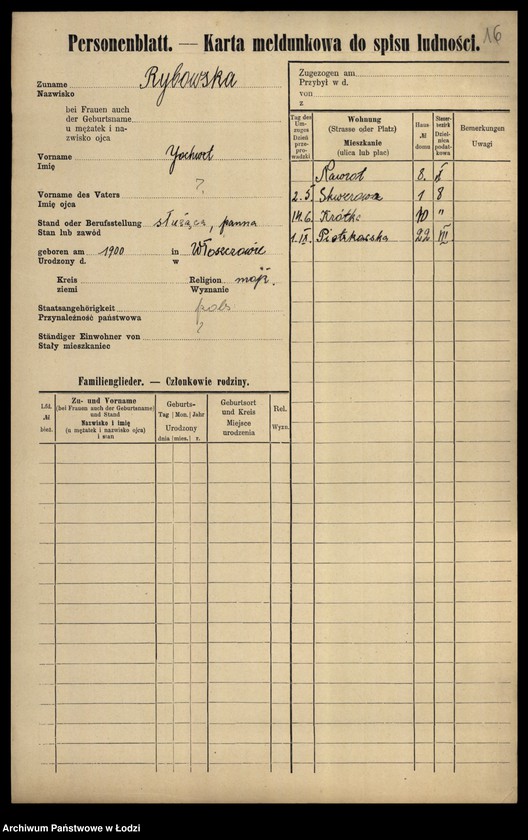 16
Personenblatt. — Karta meldunkowa do spisu ludności.
Zuname Rybowska
Nazwisko
bei Frauen auch
der Geburtsname
u mężatek i na-
zwisko ojca
Vorname Jochwet
Imię
Vorname des Vaters ?
Imię ojca
Stand oder Berufsstellung służąca, panna
Stan lub zawód
geboren am 1900 in Włoszczowie
Urodzony d. w
Kreis Religion mojż.
ziemi Wyznanie
Staatsangehörigkeit pols
Przynależność państwowa
Ständiger Einwohner von ?
Stały mieszkaniec
Familienglieder. — Członkowie rodziny.
Lfd.
№
bież.
Zu- und Vorname
(bei Frauen auch der Geburtsname)
und Stand
Nazwisko i imię
(u mężatek i nazwisko ojca)
i stan
Geburts-
Tag Mon. Jahr
Urodzony
dnia mies. r.
Geburtsort
und Kreis
Miejsce
urodzenia
Rel.
Wyzn.
Zugezogen am
Przybył w d.
von
z
Tag des
Um-
zuges
Dzień
prze-
pro-
wadzki
Wohnung
(Strasse oder Platz)
Mieszkanie
(ulica lub plac)
Haus-
№
domu
Steuer-
bezirk
Dziel-
nica
podat-
kowa
Bemerkungen
Uwagi
Nawrot 8. X
2.5. Skwerowa 1 8
14.6. Krótka 10 "
1.IX. Piotrkowska 22 III
Archiwum Państwowe w Łodzi